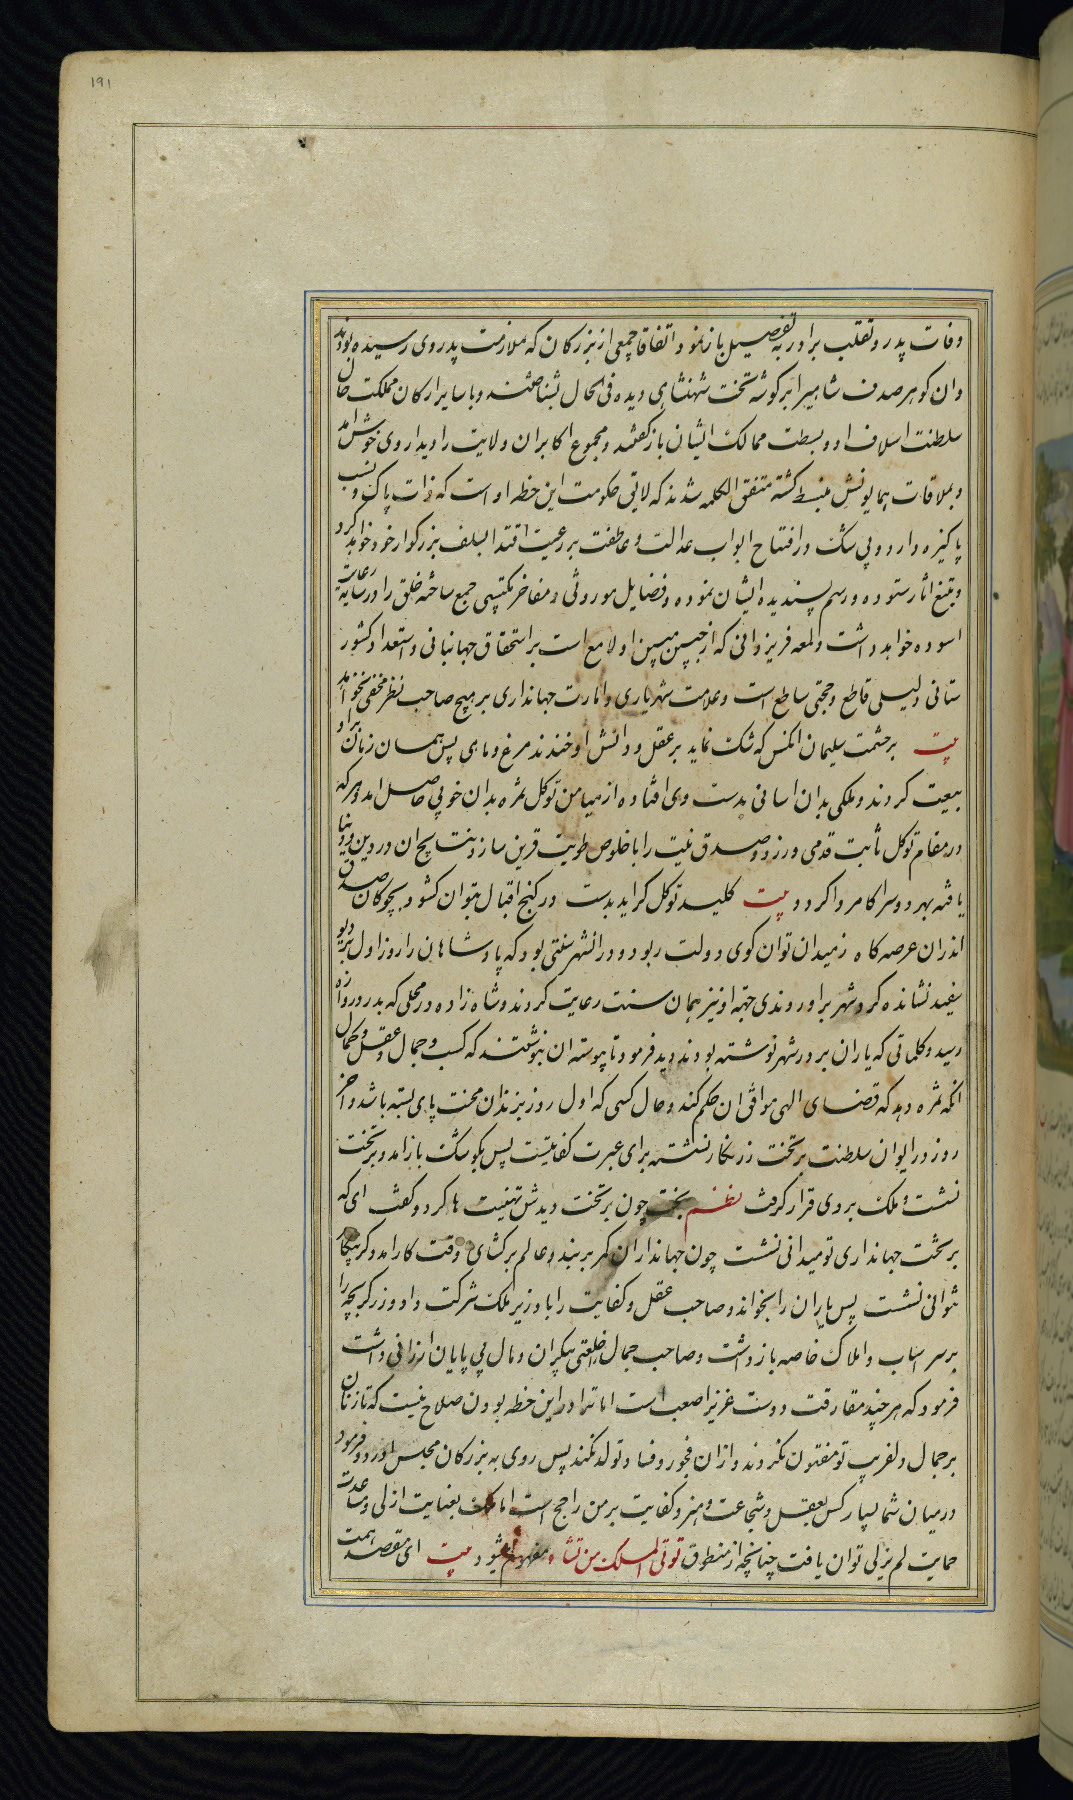 ۱۹۱
وفات پدر و تقلب برادر به تفصیل باز نمود اتفاقا جمعی از بزرکان که ملازمت پدر وی رسیده بودند
وان کوهر صدف شاهی را بر کوشه تخت شهنشاهی دیده فی الحال بشناختند و با سایر ارکان مملکت حال
سلطنت اسلاف او و بسطت ممالک ایشان بازکفتند و مجموع اکابر ان ولایت را دیدار وی خوش امد
و بملاقات همایونش منبسط کشته متفق الکلمه شدند که لایق حکومت این خطه او است که ذات پاک و نسب
پاکیزه دارد و بی شک در افتتاح ابواب عدالت و عاطفت بر رعیت اقتدا بسلف بزرکوار خود خواهد کرد
و بتبع اثار ستوده و رسم پسندیده ایشان نموده و فضایل موروثی و مفاخر مکتسبی جمع ساخته خلق را در سایه رعایت
اسوده خواهد داشت و لمعه فر یزدانی که از جبین مبین او لامع است بر استحقاق جهانبانی و استعداد کشور
ستانی دلیلی قاطع و حجتی ساطع است و علامت شهریاری و امارت جهانداری بر هیچ صاحب نظر مخفی نخواهد ماند
بیت بر حشمت سلیمان انکس که شک نماید بر عقل و دانش او خندند مرغ و ماهی پس همان زمان برو
بیعت کردند و ملکی بدان اسانی بدست وی افتاده از میامن توکل ثمره بدان خوبی حاصل امد و هر که
در مقام توکل ثابت قدمی ورزد و صدق نیت را با خلوص طویت قرین سازد نتیجه ان در دین و دنیا
یافته بهر دو سرا کامروا کردد بیت کلید توکل کر اید بدست در کنج اقبال بتوان کشود بچوکان صدق
اندران عرصه کاه زمیدان توان کوی دولت ربود و در انشهر سنتی بود که پادشاهان را روز اول بر پیل
سفید نشانده کرد شهر براوردندی جهة او نیز همان سنت رعایت کردند و شاه زاده در محلی که بدر دروازه
رسید و کلماتی که یاران بر در شهر نوشته بودند دید فرمود تا پیوسته ان نبوشتند که کسب و جمال و عقل و کمال
انکه ثمره دهد که قضای الهی موافق ان حکم کند و حال کسی که اول روز بزندان محنت پای بسته باشد و اخر
روز در ایوان سلطنت بر تخت زرنکار نشسته برای عبرت کفایتست پس بکوشک باز امد و بر تخت
نشست و ملک بر وی قرار کرفت نظم بخت چون بر تخت دیدش تهنیت ها کرد و کفت ای که
بر تخت جهانداری تو میدانی نشست چون جهانداران کمر بر بند و عالم برکشای وقت کار امد دکر بیکار
نتوانی نشست پس یاران را بخواند و صاحب عقل و کفایت را با وزیر ملک شرکت داد و برزکر بچه را
بر سر اسباب و املاک خاصه بازداشت و صاحب جمال را خلعتی بیکران و مال بی پایان ارزانی داشت
فرمود که هر چند مفارقت دوست عزیز صعب است اما ترا در این خطه بودن صلاح نیست که تا زنان
بر جمال دلفریب تو مفتون نکردند و از ان فجور و فساد تولد نکند پس روی به بزرکان مجلس اورد و فرمود
در میان شما بسیار کس بعقل و شجاعت و هنر و کفایت بر من راجح است اما ملک بعنایت ازلی و مساعدت
حمایت لم یزلی توان یافت چنانچه از منطوق توتی الملک من تشاء مفهوم میشود بیت ای مقصد همت